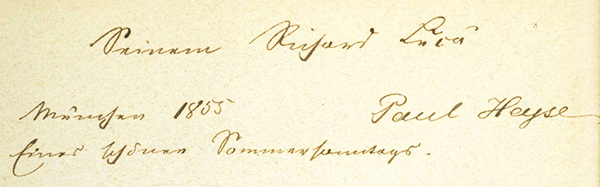 Seinem Richard Lucä
München 1855 Paul Heyse
Eines schönen Sommersonntags.